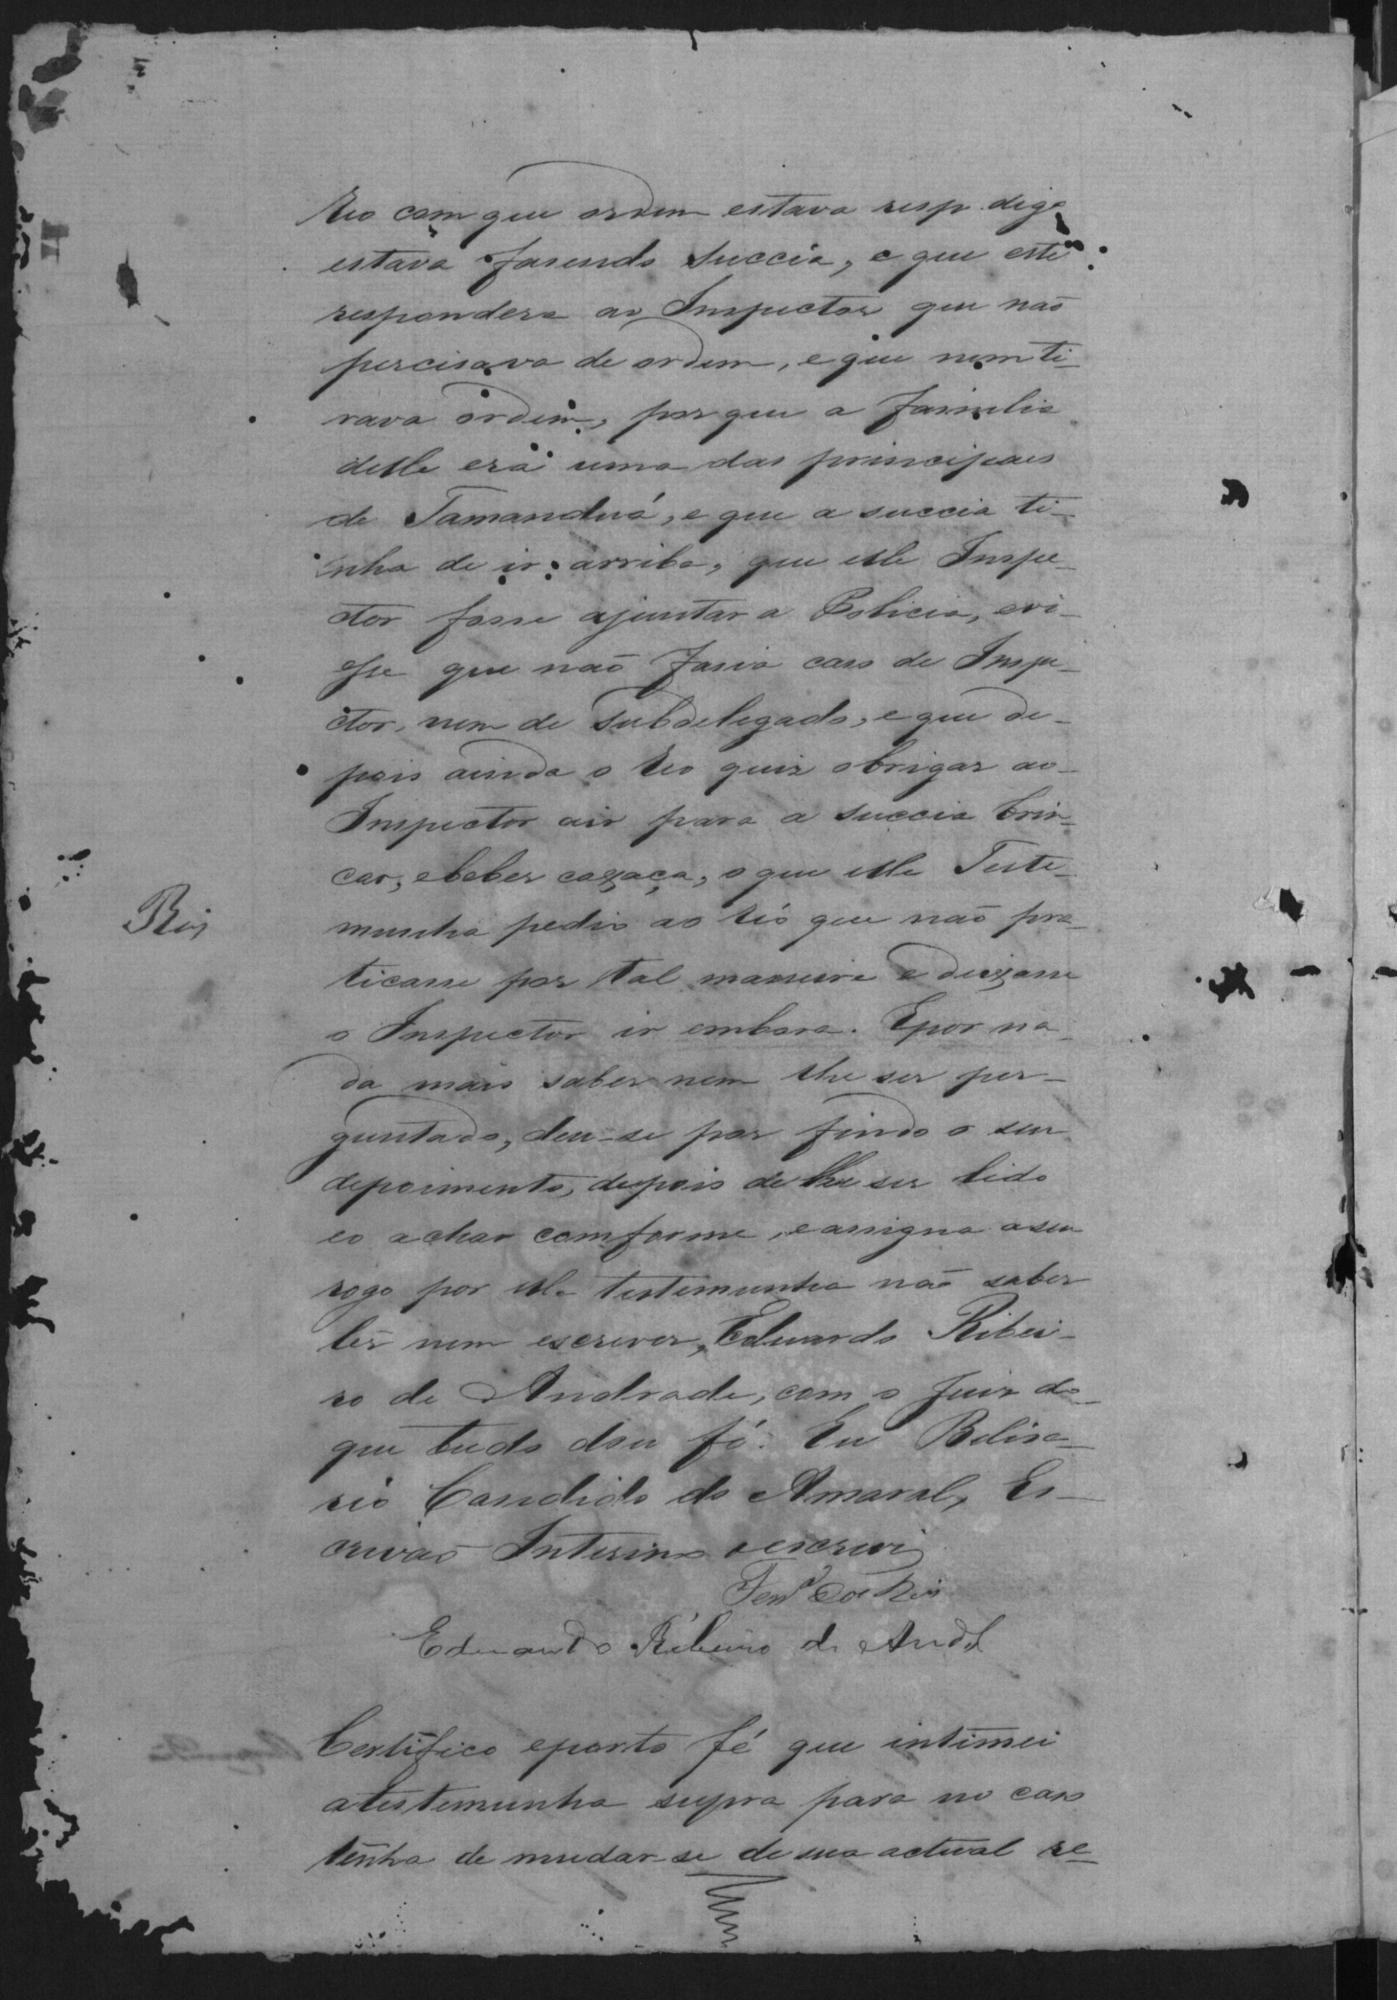 Reo com que ordem estava resp. digo
estava fasendo succia, e que este
respondera ao Inspector que não
percisava de ordem, e que nem ti-
rava ordem, por que a familia
delle era uma das principaes
de Tamanduá, e que a succia ti-
nha de ir arriba, que elle Inspe-
ctor fosse ajuntar a Policia, e vi-
esse que não fasia caso de Inspe-
ctor, nem de Subdelegado, e que de-
pois ainda o Reo quiz obrigar ao
Inspector a ir para a succia brin-
car, e beber caxaça, o que elle Teste-
Reis
munha pedio ao Réo que não pra-
ticasse por tal maneira e deixasse
o Inspector ir embora. E por na-
da mais saber nem lhe ser per-
guntado, deu-se por findo o seu
depoimento, depois de lhe ser lido
e o achar comforme, e assigna a seu
rogo por elle testemunha não saber
lêr nem escrever, Eduardo Ribei-
ro de Andrade, com o Juiz do
que tudo dou fé. Eu Belisa-
rio Candido do Amaral, Es-
crivão Interino o escrevi
Eduardo Ribeiro de Andᵉ
Certifico e porto fé que intimei
a testemunha supra para no caso
tenha de mudar-se de sua actual re-